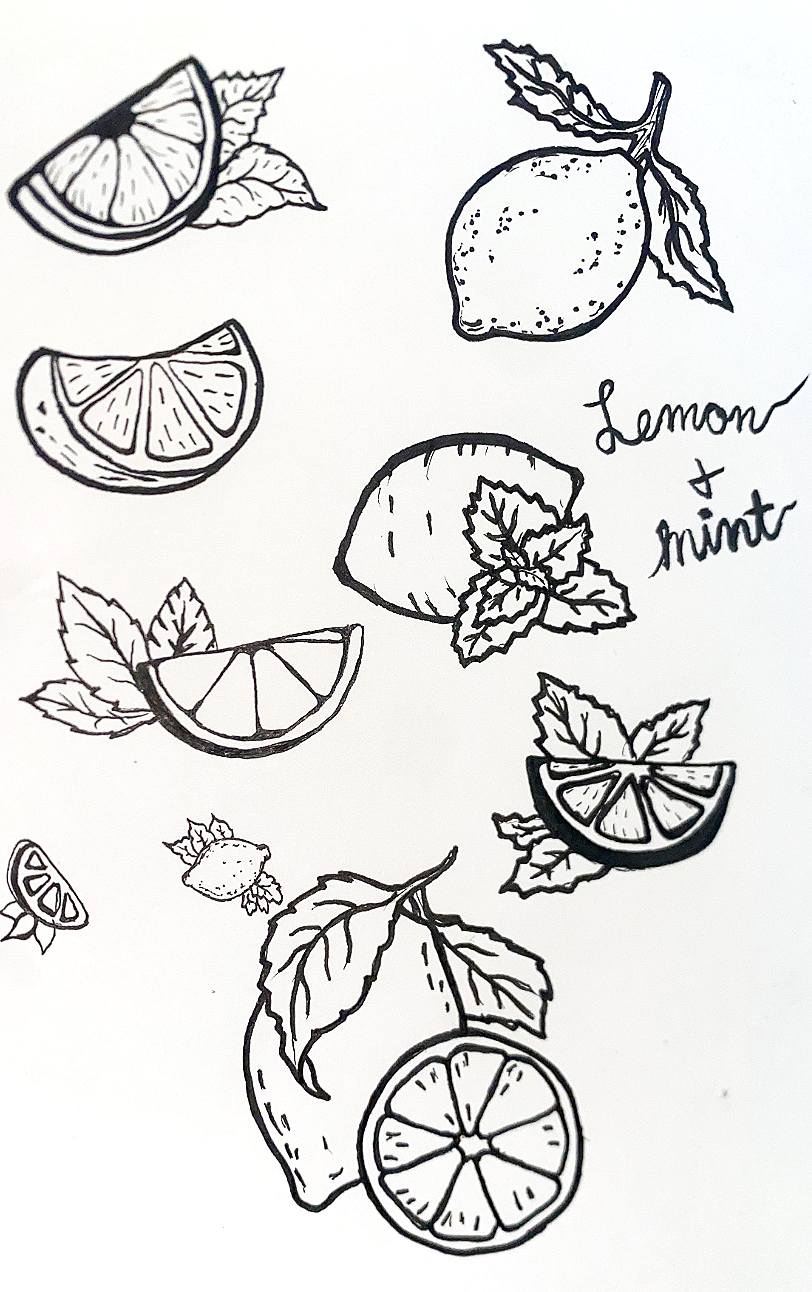 Lemon
+
mint